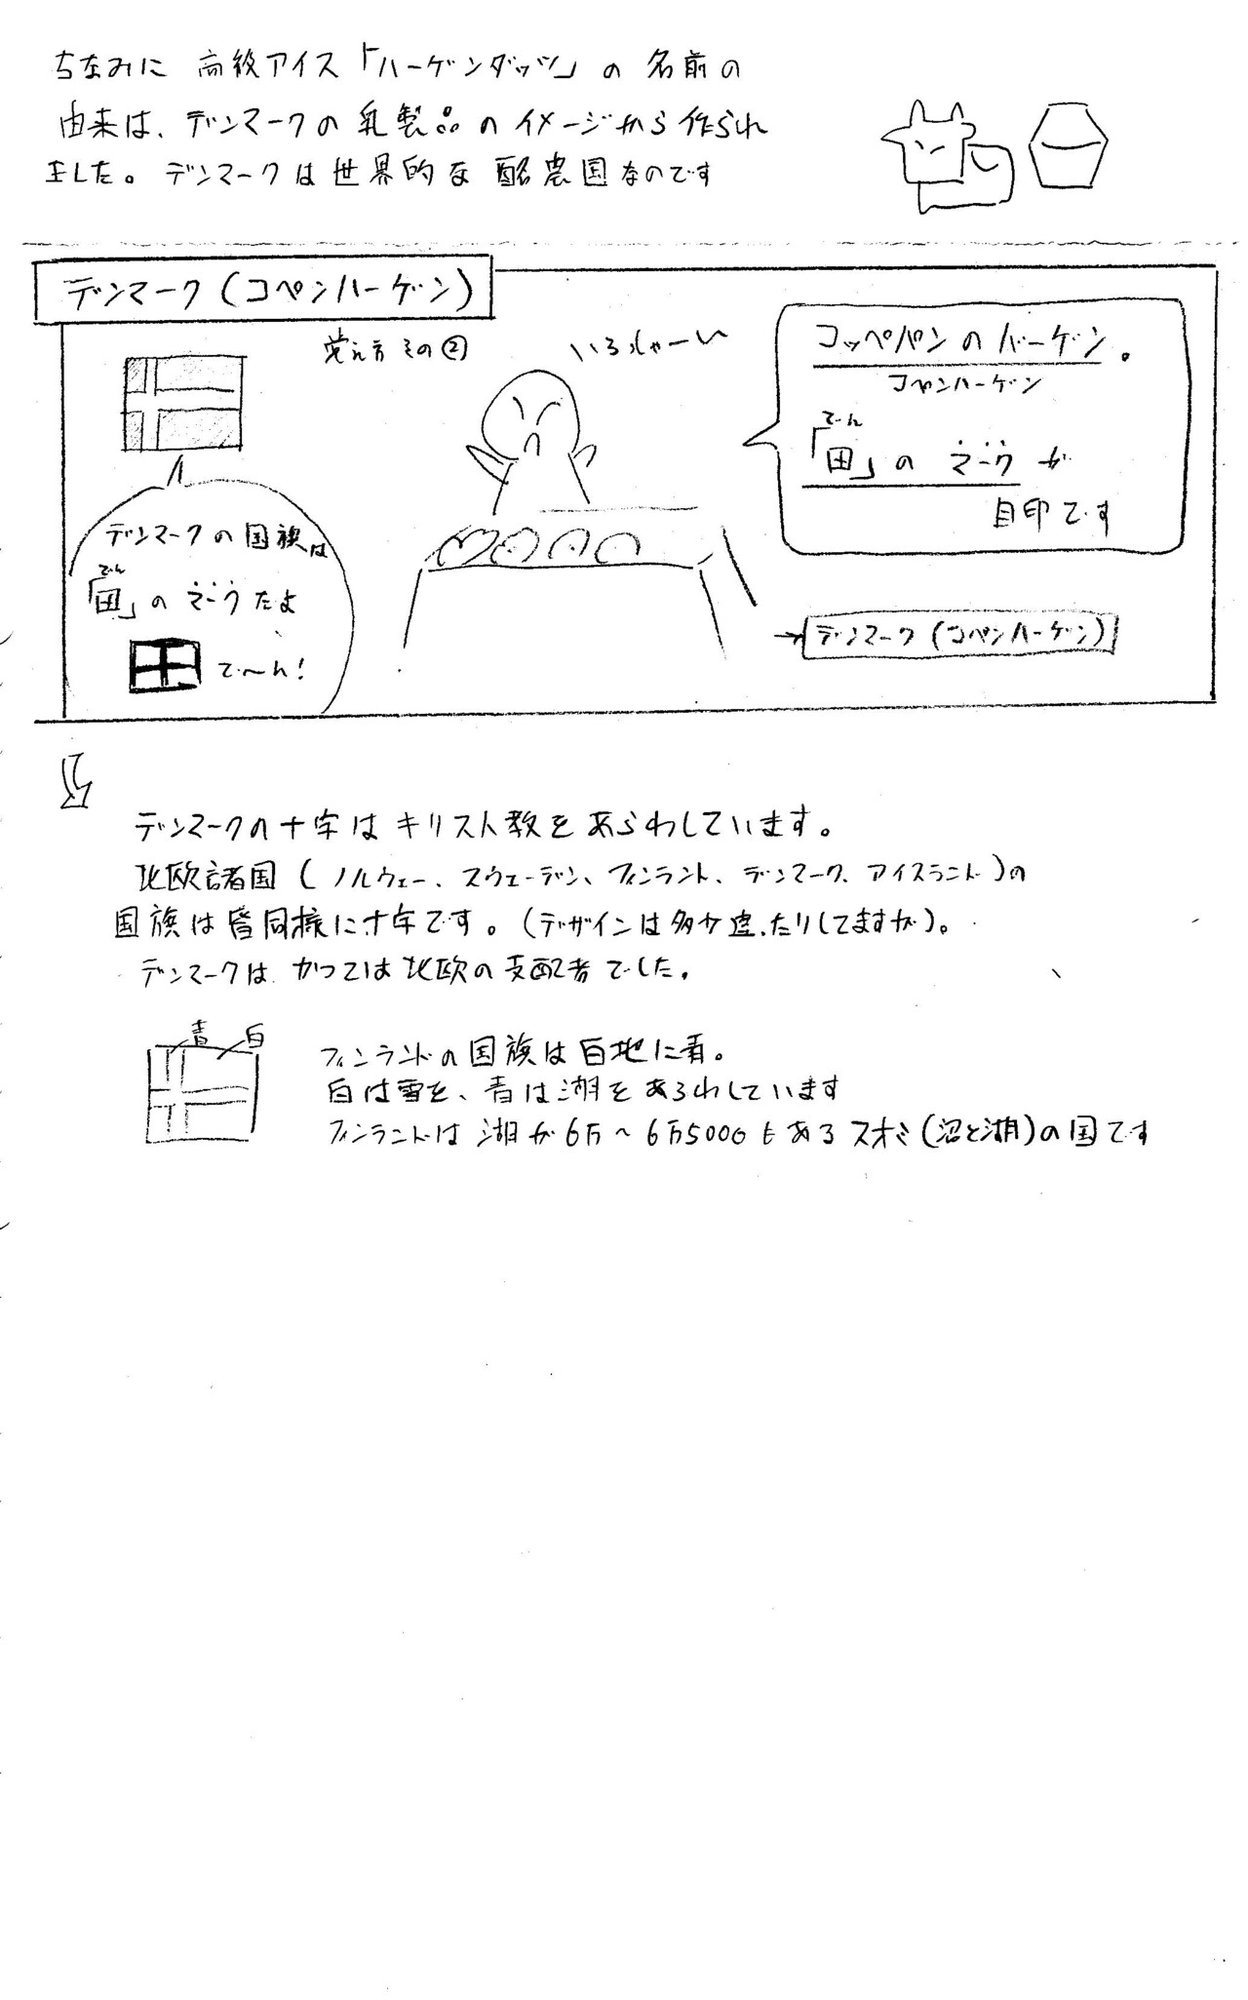 ちなみに 高級アイス「ハーゲンダッツ」の 名前の
由来は、デンマークの 乳製品の イメージから 作られ
ました。デンマークは 世界的な 酪農国なのです
デンマーク(コペンハーゲン)
覚え方 その②
いらっしゃーい
コッペパンの バーゲン。
コペンハーゲン
でん
「田」の マーク が
目印です
デンマークの 国旗は
でん
「田」の マークだよ
田 で〜ん!
→デンマーク(コペンハーゲン)
デンマークの十字は キリスト教を あらわしています。
北欧諸国(ノルウェー、スウェーデン、フィンランド、デンマーク、アイスランド)の
国旗は 皆同様に十字です。(デザインは多少違ったりしてますが)。
デンマークは かつては 北欧の 支配者でした。
青 白
フィンランドの 国旗は 白地に青。
白は雪を、青は湖を あらわしています
フィンランドは 湖が 6万〜6万5000もある スオミ(沼と湖)の国です